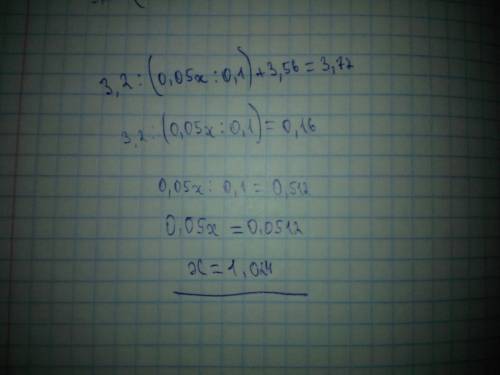 3,2:(0,05x:0,1)+3,56=3,72
3,2:(0,05x:0,1)=0,16
0,05x:0,1=0,512
0,05x=0,0512
x=1,024